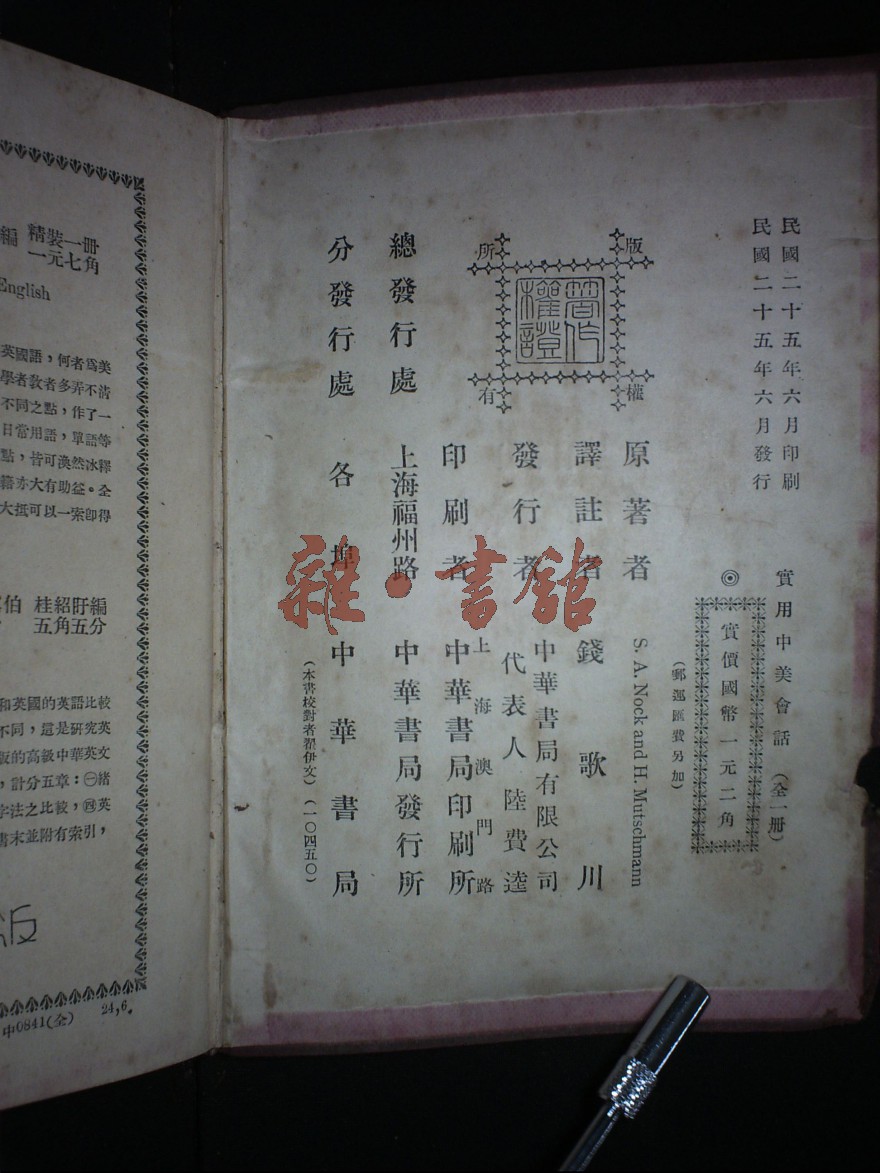 民國二十五年六月印刷
民國二十五年六月發行
實用中美會話(全一冊)
◎實價國幣一元二角
(郵運匯費另加)
版權所有
著作權證
原著者 S. A. Nock and H. Mutschmann
譯註者 錢歌川
發行者 中華書局有限公司
代表人 陸費逵
印刷者 上海澳門路
中華書局印刷所
總發行處 上海福州路 中華書局發行所
分發行處 各埠 中華書局
(本書校對者翟伊文)(一〇四五〇)
雜·書館
編 精裝一冊
一元七角
English
英國語,何者爲美
學者教者多弄不清
不同之點,作了一
日常用語,單語等
點,皆可渙然冰釋
籍亦大有助益。全
大抵可以一索卽得
伯 桂紹盱編
五角五分
和英國的英語比較
不同,這是研究英
版的高級中華英文
,計分五章:㊀緒
字法之比較,㊃英
書末並附有索引,
版
中0841(全) 24,6.